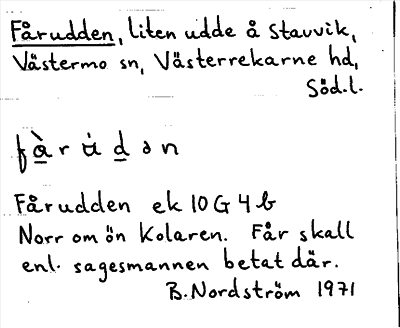 Fårudden, liten udde å Stavvik,
Västermo sn, Västerrekarne hd,
Söd.l.
fà̲ru̇d̲ən
Fårudden ek 10 G 4 b
Norr om ön Kolaren. Får skall
enl. sagesmannen betat där.
B. Nordström 1971